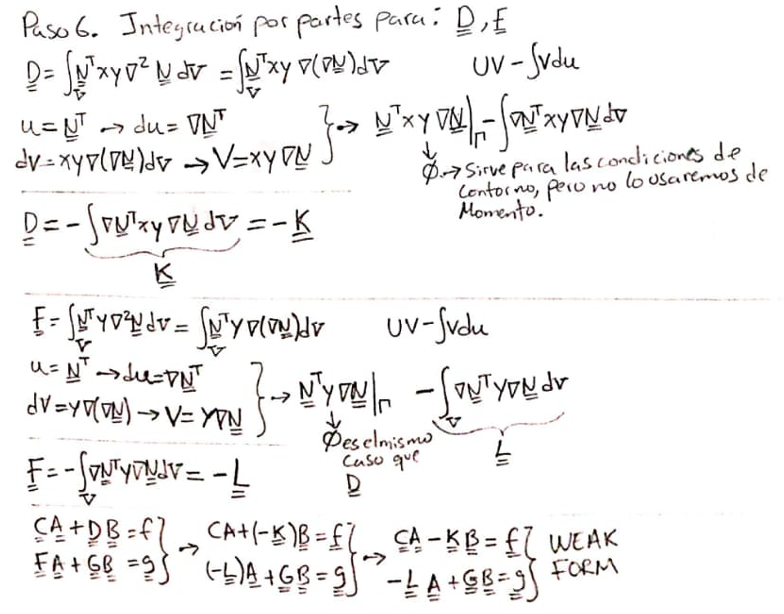 Paso 6. Integración por partes para: D, F
D = ∫_V N^T xy ∇² N dV = ∫_V N^T xy ∇(∇N)dV    UV - ∫Vdu
u = N^T → du = ∇N^T
dV = xy∇(∇N)dV → V = xy∇N } → N^T xy ∇N|_Γ - ∫∇N^T xy∇N dV
↓
∅ → Sirve para las condiciones de
Contorno, pero no lo usaremos de
Momento.
D = - ∫∇N^T xy ∇N dV = -K
K
F = ∫_V N^T y∇²N dV = ∫_V N^T y ∇(∇N)dV    UV - ∫Vdu
u = N^T → du = ∇N^T
dV = y∇(∇N) → V = y∇N } → N^T y∇N|_Γ - ∫_V ∇N^T y∇N dV
↓
∅ es el mismo
Caso que
D
L
F = - ∫_V ∇N^T y∇N dV = -L
CA + DB = f } → CA + (-K)B = f } → CA - KB = f } WEAK
FA + GB = g } (-L)A + GB = g } -LA + GB = g } FORM